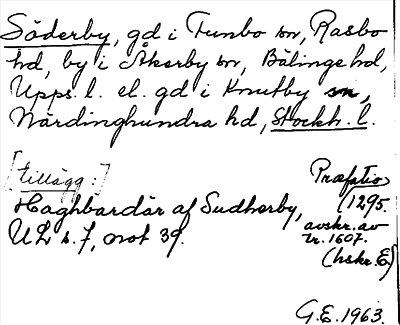 Söderby, gd i Funbo sn, Rasbo
hd, by i Åkerby sn, Bälinge hd,
Upps. l. el. gd i Knutby sn,
Närdinghundra hd, Stockh. l.
[tillägg:]
Præfatio
Haghbardär af Sudherby, (1295.
UL s. 7, not 39. avskr. av
tr. 1607.
(hskr. E)
G.E. 1963.